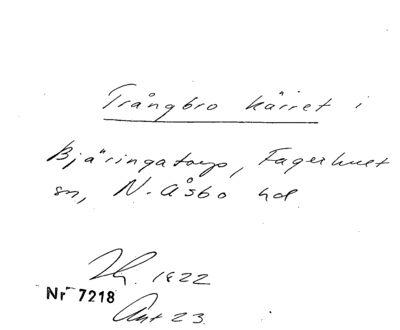 Trångbro kärret i
Bjäringatorp, Fagerhult
sn, N. Åsbo hd
Th. 1822
Nr 7218
Ant 23.